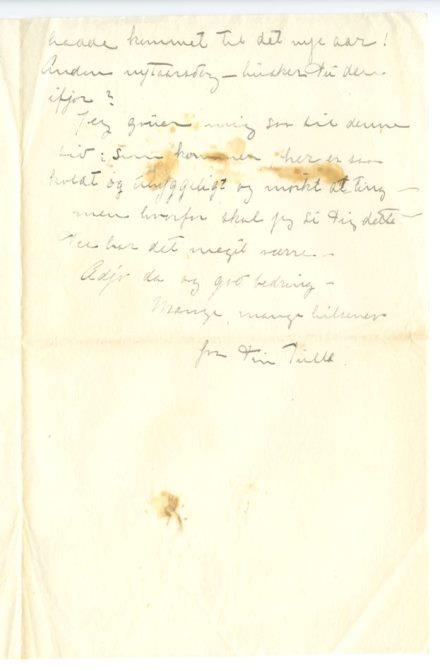 haade kommet til det nye aar!
Anden nytaarsdag – husker Du den
ifjor?
Jeg gruer mig saa til denne
tid, som kommer, her er saa
koldt og uhyggeligt og mørkt alting –
men hvorfor skal jeg si Dig dette –
Du har det meget værre –
Adjø da og god bedring –
Mange, mange hilsener
fra Din Tulla.